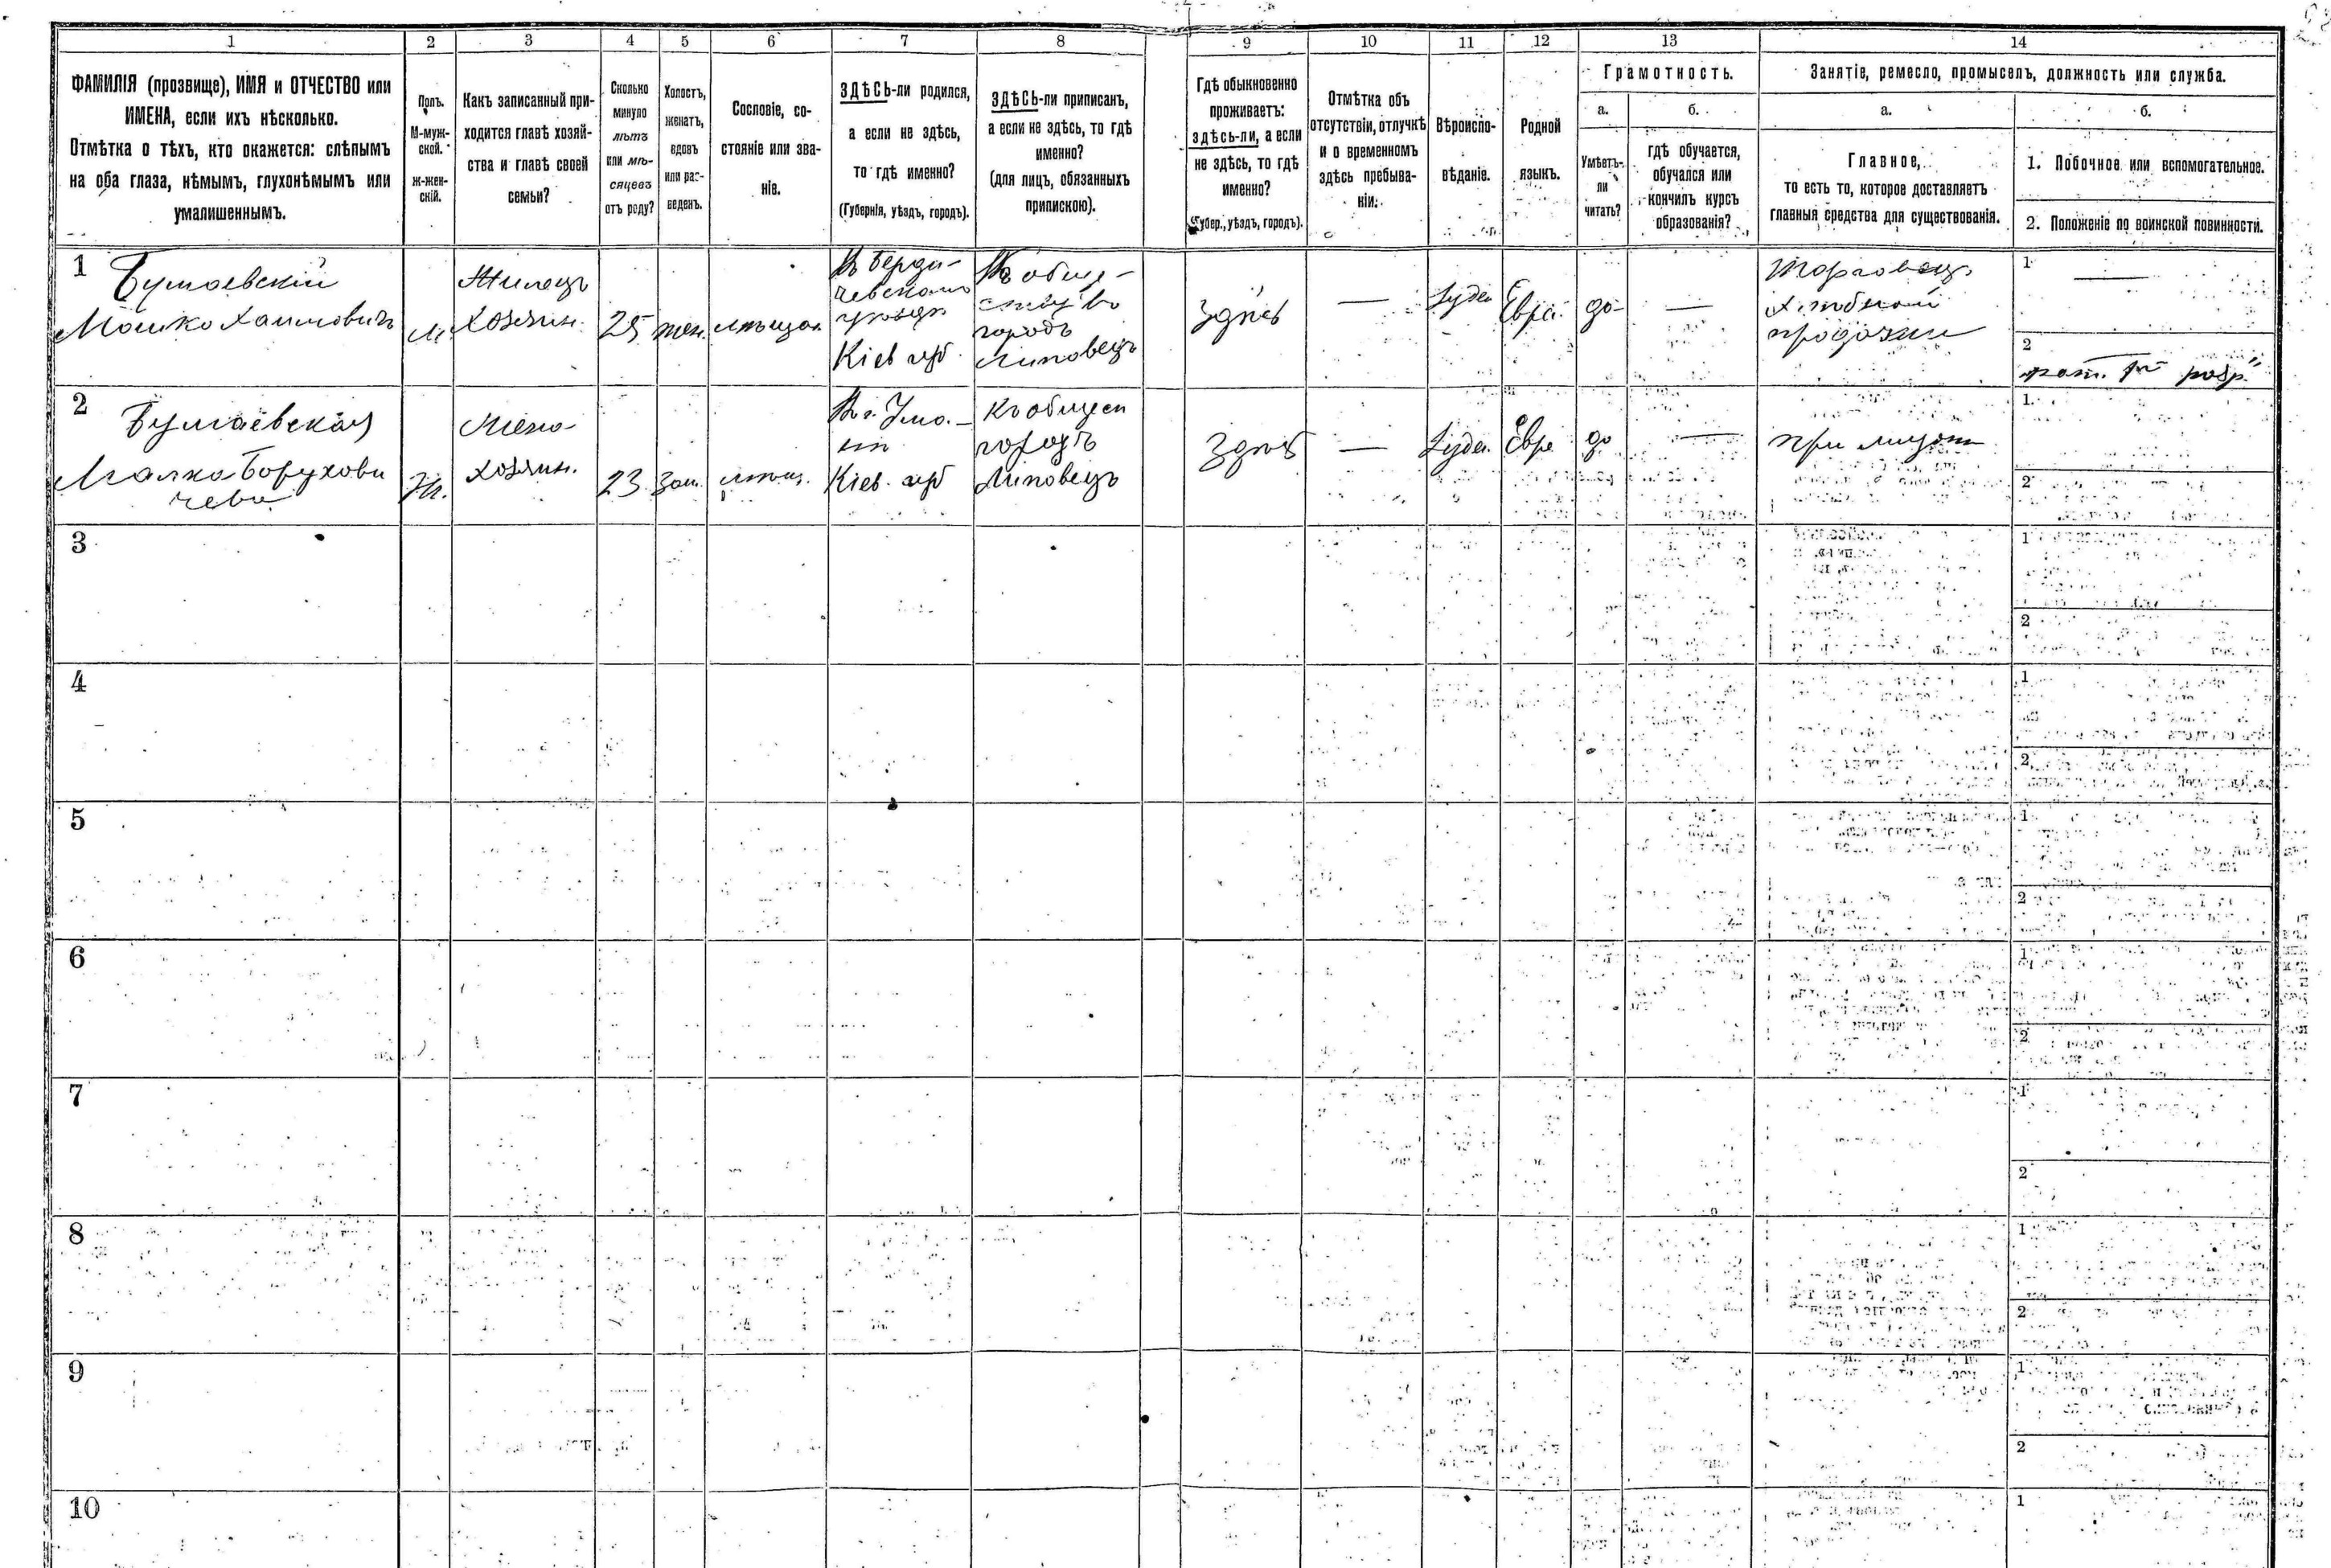 1 2 3 4 5 6 7 8 9 10 11 12 13 14
ФАМИЛІЯ (прозвище), ИМЯ и ОТЧЕСТВО или
ИМЕНА, если ихъ нѣсколько.
Отмѣтка о тѣхъ, кто окажется: слѣпымъ
на оба глаза, нѣмымъ, глухонѣмымъ или
умалишеннымъ.
Полъ.
М-муж-
ской.
Ж-жен-
скій.
Какъ записанный при-
ходится главѣ хозяй-
ства и главѣ своей
семьи?
Сколько
минуло
лѣтъ
или мѣ-
сяцевъ
отъ роду?
Холостъ,
женатъ,
вдовъ
или раз-
веденъ.
Сословіе, со-
стояніе или зва-
ніе.
ЗДѢСЬ-ли родился,
а если не здѣсь,
то гдѣ именно?
(Губернія, уѣздъ, городъ).
ЗДѢСЬ-ли приписанъ,
а если не здѣсь, то гдѣ
именно?
(для лицъ, обязанныхъ
припискою).
Гдѣ обыкновенно
проживаетъ:
здѣсь-ли, а если
не здѣсь, то гдѣ
именно?
(Губер., уѣздъ, городъ).
Отмѣтка объ
отсутствіи, отлучкѣ
и о временномъ
здѣсь пребыва-
ніи.
Вѣроиспо-
вѣданіе.
Родной
языкъ.
Грамотность.
а.
Умѣетъ-
ли
читать?
б.
гдѣ обучается,
обучался или
кончилъ курсъ
образованія?
Занятіе, ремесло, промыселъ, должность или служба.
а.
Главное,
то есть то, которое доставляетъ
главныя средства для существованія.
б.
1. Побочное или вспомогательное.
2. Положеніе по воинской повинности.
1
Мошко Хаимовичъ
М.
Жилецъ
хозяин.
25
жен.
мѣщан.
Въ Берди-
чевскомъ
уѣзде
Кіев губ.
Къ обще-
ству
городъ
Липовецъ
Здѣсь
—
Іудей
Евре.
да
—
Торговец
хлебной
продажи
1
—
2
рат. разр.
2
Малка Борухови
чева
Ж.
Жена
хозяин.
23
зам.
мѣщ.
Въ г. Ума-
ни
Кіев. губ
Къ общест
городъ
Липовецъ
Здѣсь
—
Іудей
Евре
да
—
при мужѣ
1.
2
3
1
2
4
1
2
5
1
2
6
1
2
7
1
2
8
1
2
9
1
2
10
1